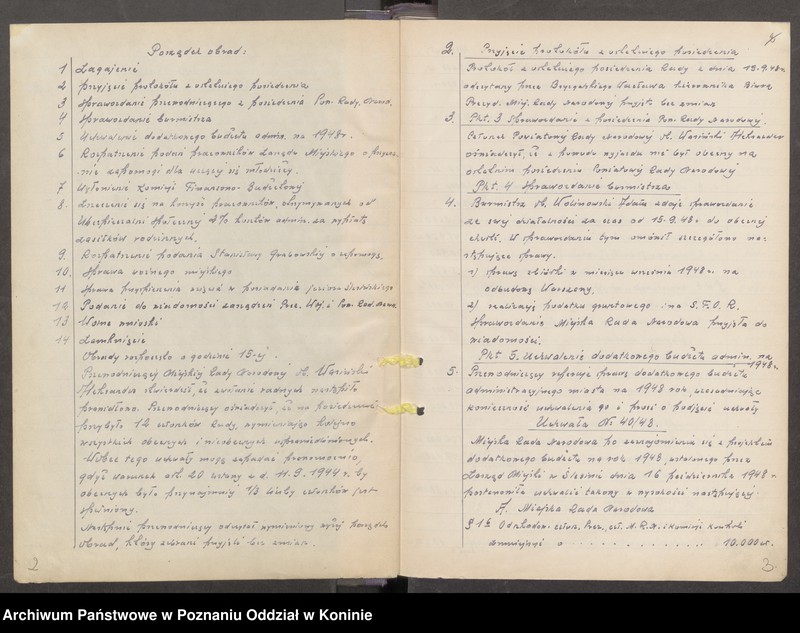 Porządek obrad:
1 Zagajenie
2 przyjęcie protokółu z ostatniego posiedzenia
3 Sprawozdanie przewodniczącego z posiedzenia Pow. Rady Narod.
4 Sprawozdanie burmistrza
5 Uchwalenie dodatkowego budżetu admin. na 1948 r.
6 Rozpatrzenie podań pracowników Zarządu Miejskiego o
nie zapomogi dla uczącej się młodzieży.
7 Wyłonienie Komisji Finansowo-Budżetowej
8. Zrzeczenie się na korzyść pracowników, otrzymywanych od
Ubezpieczalni Społecznej 4% kosztów admin. za wypłatę
zasiłków rodzinnych.
9. Rozpatrzenie podania Stanisławy Grabowskiej o zapomogę.
10. Sprawa woźnego miejskiego
11 Sprawa
12 Podanie do wiadomości zarządzeń Prez. Woj. i Pow. Rad. Narod.
13 Wolne wnioski
14 Zamknięcie
Obrady rozpoczęto o godzinie 15-ej.
Przewodniczący Miejskiej Rady Narodowej ob. Wasiński
Aleksander stwierdził, że zwołanie radnych nastąpiło
prawidłowo. Przewodniczący oświadczył, że na posiedzenie
przybyło 12 członków Rady, wymieniając kolejno
wszystkich obecnych i nieobecnych usprawiedliwionych.
Wobec tego uchwały mogą zapadać prawomocnie,
gdyż warunek art. 20 ustawy z d. 11.9.1944 r. by
obecnych było przynajmniej 1/3 liczby członków jest
spełniony.
Następnie przewodniczący odczytał wymieniony wyżej porządek
obrad, który zebrani przyjęli bez zmian.
2
2. Przyjęcie protokółu z ostatniego posiedzenia
Protokół z ostatniego posiedzenia Rady z dnia 15.9.48 r.
odczytany przez Wacława kierownika Biura
Prezyd. Miej. Rady Narodowej przyjęto bez zmian
3. Pkt. 3 Sprawozdanie z posiedzenia Pow. Rady Narodowej.
Członek Powiatowej Rady Narodowej ob. Wasiński Aleksander
oświadczył, że z powodu wyjazdu nie był obecny na
ostatnim posiedzeniu Powiatowej Rady Narodowej
Pkt. 4 Sprawozdanie burmistrza
4. Burmistrz ob. Wolinowski zdaje sprawozdanie
ze swej działalności za czas od 15.9.48 r. do obecnej
chwili. W sprawozdaniu tym omówił szczegółowo na-
stępujące sprawy.
1) sprawę zbiórki w miesiącu wrześniu 1948 r. na
odbudowę Warszawy.
2) realizację podatku gruntowego i na S.F.O.R.
Sprawozdanie Miejska Rada Narodowa przyjęła do
wiadomości.
Pkt 5. Uchwalenie dodatkowego budżetu admin. na
1948 r.
5. Przewodniczący referuje sprawę dodatkowego budżetu
administracyjnego miasta na 1948 rok, uzasadniając
konieczność uchwalenia go i prosi o podjęcie uchwały
Uchwała Nr 40/48.
Miejska Rada Narodowa po zaznajomieniu się z projektem
dodatkowego budżetu na rok 1948, ustalonego przez
Zarząd Miejski w Ślesinie dnia 16 października 1948 r.
postanowiła uchwalić takowy w wysokości następującej:
A. Miejska Rada Narodowa
10.000 zł.
3.
Archiwum Państwowe w Poznaniu Oddział w Koninie